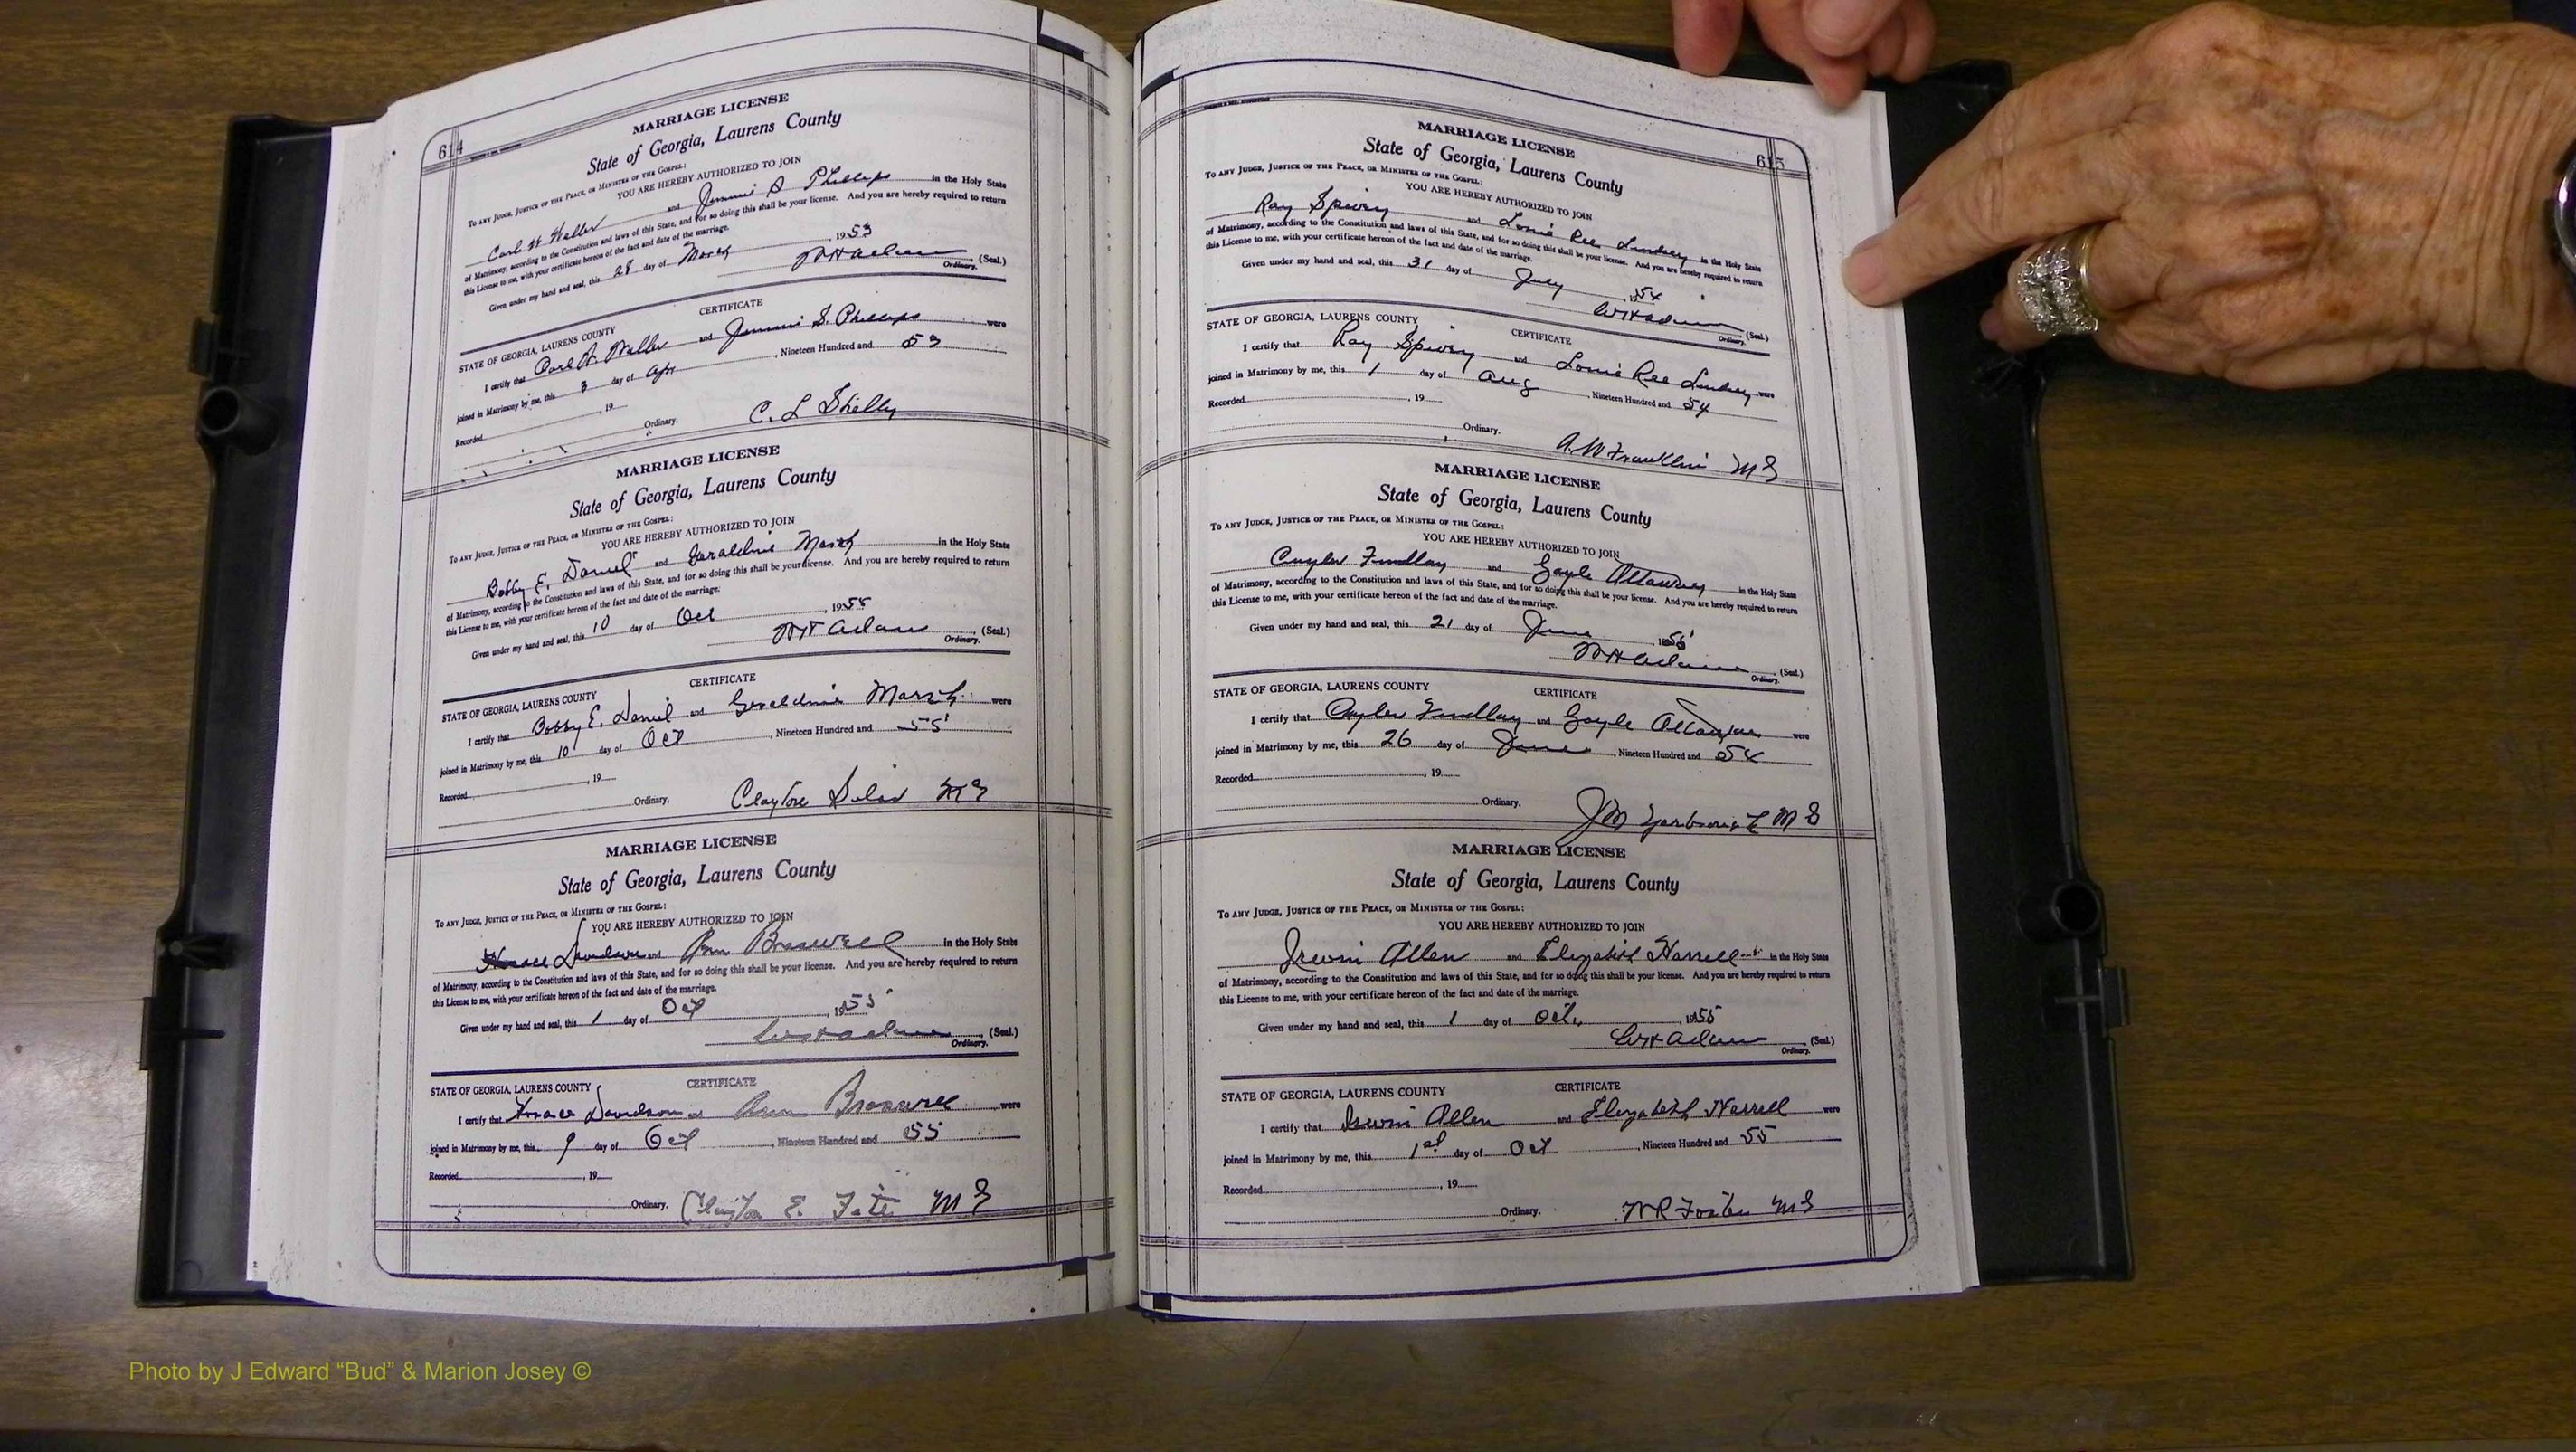 614
MARRIAGE LICENSE
State of Georgia, Laurens County
TO ANY JUDGE, JUSTICE OF THE PEACE, OR MINISTER OF THE GOSPEL:
YOU ARE HEREBY AUTHORIZED TO JOIN
Carl W Waller and Jimmie S Phillips in the Holy State
of Matrimony, according to the Constitution and laws of this State, and for so doing this shall be your license. And you are hereby required to return
this License to me, with your certificate hereon of the fact and date of the marriage.
Given under my hand and seal, this 28 day of March, 1953
WH Adams (Seal.)
Ordinary.
CERTIFICATE
STATE OF GEORGIA, LAURENS COUNTY
I certify that Carl W Waller and Jimmie S. Phillips were
joined in Matrimony by me, this 3 day of Apr, Nineteen Hundred and 53
Recorded, 19
Ordinary. C. L Shelly
MARRIAGE LICENSE
State of Georgia, Laurens County
TO ANY JUDGE, JUSTICE OF THE PEACE, OR MINISTER OF THE GOSPEL:
YOU ARE HEREBY AUTHORIZED TO JOIN
Bobby E. Daniel and Geraldine March in the Holy State
of Matrimony, according to the Constitution and laws of this State, and for so doing this shall be your license. And you are hereby required to return
this License to me, with your certificate hereon of the fact and date of the marriage.
Given under my hand and seal, this 10 day of Oct, 1955
WH Adams (Seal.)
Ordinary.
CERTIFICATE
STATE OF GEORGIA, LAURENS COUNTY
I certify that Bobby E. Daniel and Geraldine Marsh were
joined in Matrimony by me, this 10 day of Oct, Nineteen Hundred and 55
Recorded, 19
Ordinary. Clayton MG
MARRIAGE LICENSE
State of Georgia, Laurens County
TO ANY JUDGE, JUSTICE OF THE PEACE, OR MINISTER OF THE GOSPEL:
YOU ARE HEREBY AUTHORIZED TO JOIN
Horace Davidson and Ann Braswell in the Holy State
of Matrimony, according to the Constitution and laws of this State, and for so doing this shall be your license. And you are hereby required to return
this License to me, with your certificate hereon of the fact and date of the marriage.
Given under my hand and seal, this 1 day of Oct, 1955
WH Adams (Seal.)
Ordinary.
CERTIFICATE
STATE OF GEORGIA, LAURENS COUNTY
I certify that Horace Davidson and Ann Braswell were
joined in Matrimony by me, this 9 day of Oct, Nineteen Hundred and 55
Recorded, 19
Ordinary. Clayton E. MG
615
MARRIAGE LICENSE
State of Georgia, Laurens County
TO ANY JUDGE, JUSTICE OF THE PEACE, OR MINISTER OF THE GOSPEL:
YOU ARE HEREBY AUTHORIZED TO JOIN
Ray Spivey and Lonie Ree Lindsey in the Holy State
of Matrimony, according to the Constitution and laws of this State, and for so doing this shall be your license. And you are hereby required to return
this License to me, with your certificate hereon of the fact and date of the marriage.
Given under my hand and seal, this 31 day of July, 1954
WH Adams (Seal.)
Ordinary.
CERTIFICATE
STATE OF GEORGIA, LAURENS COUNTY
I certify that Ray Spivey and Lonie Ree Lindsey were
joined in Matrimony by me, this 1 day of Aug, Nineteen Hundred and 54
Recorded, 19
Ordinary. A. W Franklin MG
MARRIAGE LICENSE
State of Georgia, Laurens County
TO ANY JUDGE, JUSTICE OF THE PEACE, OR MINISTER OF THE GOSPEL:
YOU ARE HEREBY AUTHORIZED TO JOIN
Cuyler Findlay and Gayle Attaway in the Holy State
of Matrimony, according to the Constitution and laws of this State, and for so doing this shall be your license. And you are hereby required to return
this License to me, with your certificate hereon of the fact and date of the marriage.
Given under my hand and seal, this 21 day of June, 1955
WH Adams (Seal.)
Ordinary.
CERTIFICATE
STATE OF GEORGIA, LAURENS COUNTY
I certify that Cuyler Findlay and Gayle Attaway were
joined in Matrimony by me, this 26 day of June, Nineteen Hundred and 54
Recorded, 19
Ordinary. JM Yarbrough MG
MARRIAGE LICENSE
State of Georgia, Laurens County
TO ANY JUDGE, JUSTICE OF THE PEACE, OR MINISTER OF THE GOSPEL:
YOU ARE HEREBY AUTHORIZED TO JOIN
Irwin Allen and Elizabeth Harrell in the Holy State
of Matrimony, according to the Constitution and laws of this State, and for so doing this shall be your license. And you are hereby required to return
this License to me, with your certificate hereon of the fact and date of the marriage.
Given under my hand and seal, this 1 day of Oct., 1955
WH Adams (Seal.)
Ordinary.
CERTIFICATE
STATE OF GEORGIA, LAURENS COUNTY
I certify that Irwin Allen and Elizabeth Harrell were
joined in Matrimony by me, this 1st day of Oct, Nineteen Hundred and 55
Recorded, 19
Ordinary. WR Foster MG
Photo by J Edward “Bud” & Marion Josey ©